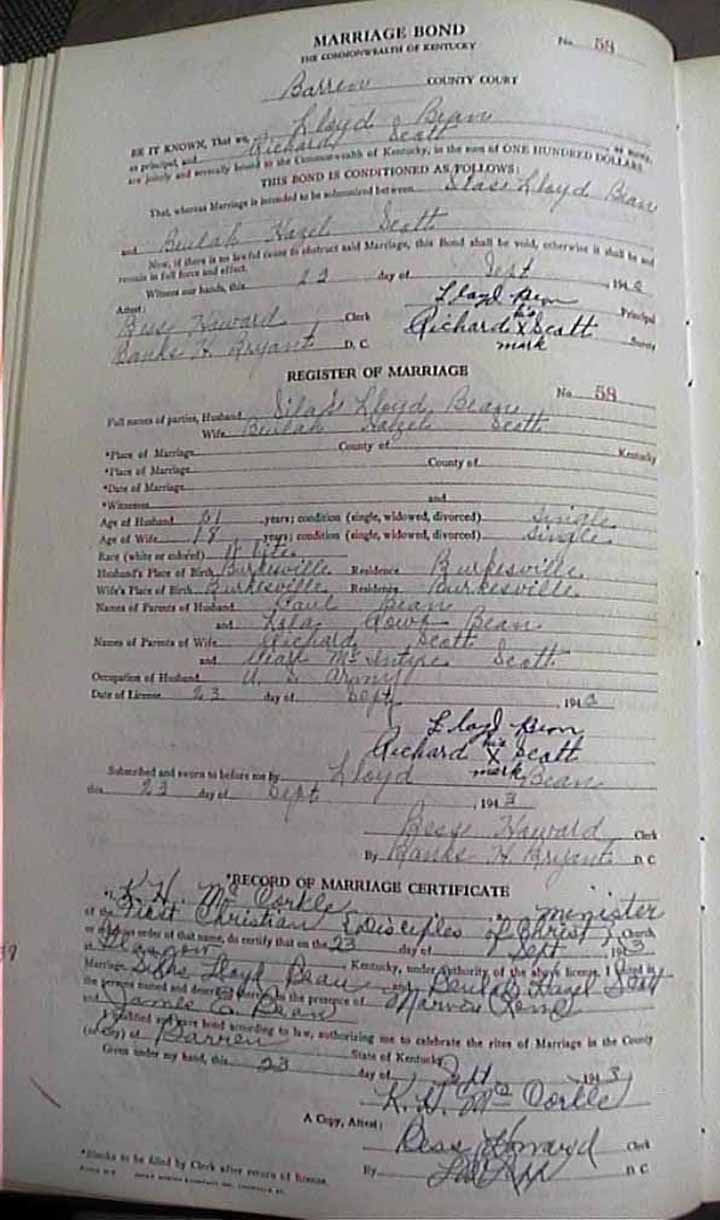 MARRIAGE BOND
THE COMMONWEALTH OF KENTUCKY
No. 58
Barren COUNTY COURT
BE IT KNOWN, That we, Lloyd Bean
as principal, and Richard Scott, as surety,
are jointly and severally bound to the Commonwealth of Kentucky, in the sum of ONE HUNDRED DOLLARS.
THIS BOND IS CONDITIONED AS FOLLOWS:
That, whereas Marriage is intended to be solemnized between Silas Lloyd Bean
and Beulah Hazel Scott
Now, if there is no lawful cause to obstruct said Marriage, this Bond shall be void, otherwise it shall be and
remain in full force and effect.
Witness our hands, this 23 day of Sept, 194
Attest: Lloyd Bean Principal
Bess Howard Clerk Richard his X mark Scott Surety
Banks H. Bryant D. C.
REGISTER OF MARRIAGE
No. 58
Full names of parties, Husband Silas Lloyd Bean
Wife Beulah Hazel Scott
*Place of Marriage County of Kentucky
*Place of Marriage County of
*Date of Marriage
*Witnesses and
Age of Husband 21 years; condition (single, widowed, divorced) Single
Age of Wife 18 years; condition (single, widowed, divorced) Single
Race (white or colored) White
Husband's Place of Birth Burkesville Residence Burkesville
Wife's Place of Birth Burkesville Residence Burkesville
Names of Parents of Husband Paul Bean
and Lola Bean
Names of Parents of Wife Richard Scott
and McIntyre Scott
Occupation of Husband U. S. Army
Date of License 23 day of Sept, 194
Lloyd Bean
Richard his X mark Scott
Subscribed and sworn to before me by Lloyd Bean
this 23 day of Sept, 1943
Bess Howard Clerk
By Banks H Bryant D. C.
*RECORD OF MARRIAGE CERTIFICATE
*I, K. H. McCorkle, a minister
of the First Christian (Disciples of Christ) Church
or religious order of that name, do certify that on the 23 day of Sept, 1943
at Glasgow, Kentucky, under authority of the above license, I united in
Marriage Silas Lloyd Bean and Beulah Hazel Scott
the persons named and described therein, in the presence of Marvin
and James E. Bean
I qualified and gave bond according to law, authorizing me to celebrate the rites of Marriage in the County
(or City) of Barren State of Kentucky
Given under my hand, this 23 day of Sept, 1943
K. H. McCorkle
A Copy, Attest:
Bess Howard Clerk
By D. C.
*Blanks to be filled by Clerk after return of license.